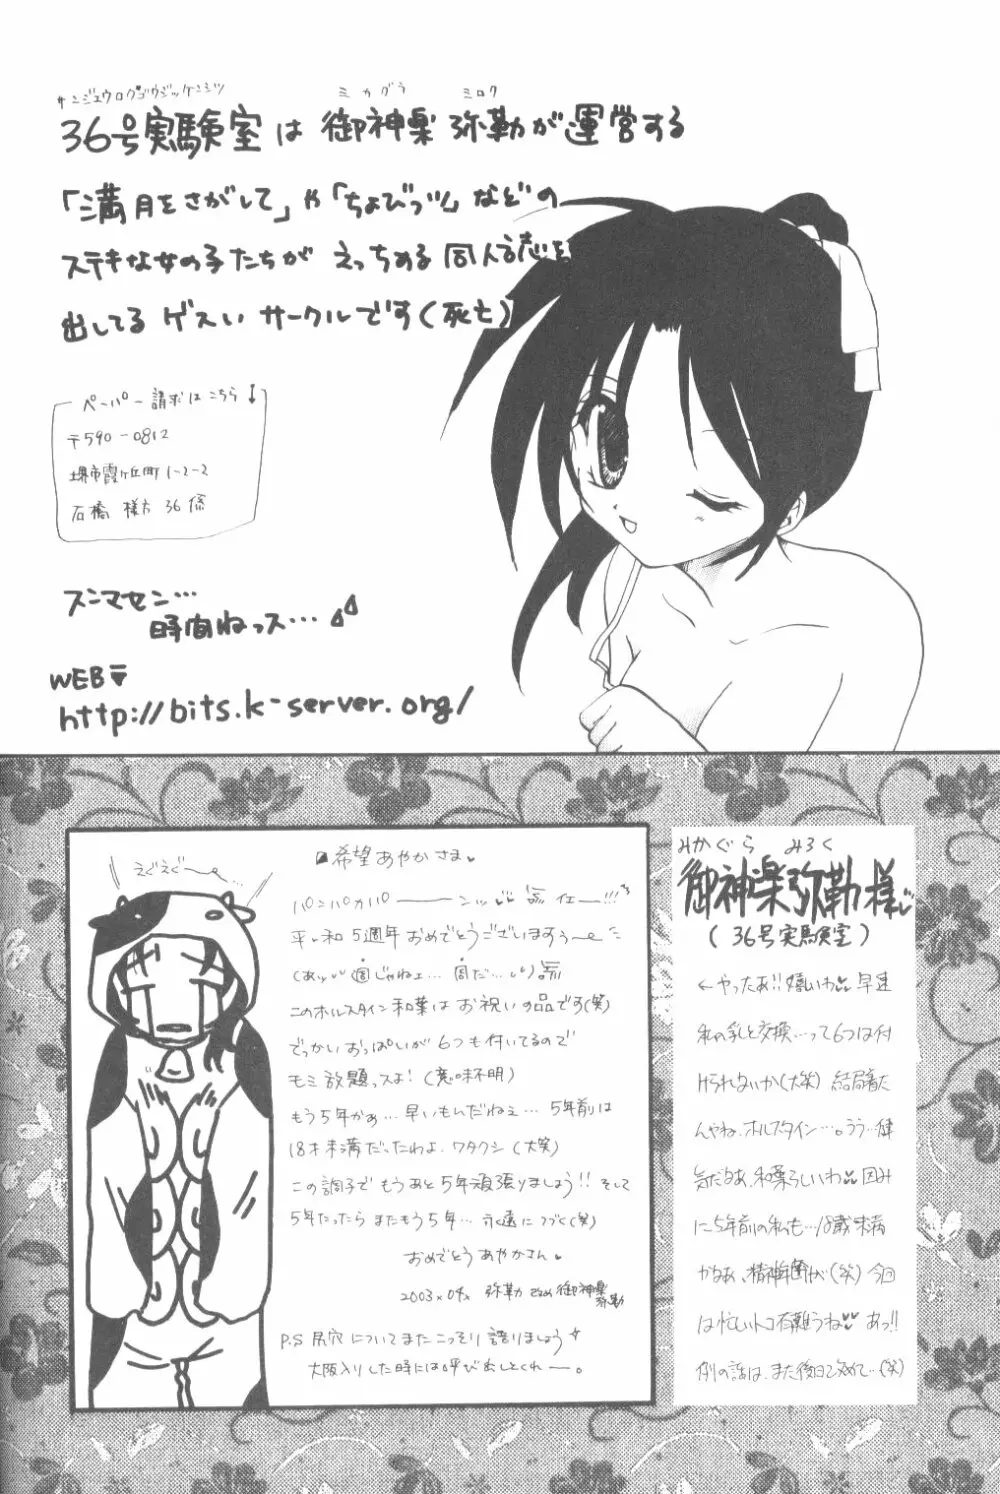 サンジュウロクゴウジッケンシツ
ミカグラ ミロク
36号実験室は 御神楽 弥勒が運営する
「満月をさがして」や「ちょびっツ」などの
ステキな女の子たちが えっちめる 同人誌を
出してる ゲスい サークルです(死亡)
ペーパー請求はこちら↓
〒590-0812
堺市霞ヶ丘町1-2-2
石橋 様方 36係
スンマセン…
時間ねっス…
WEB
http://bits.k-server.org/
えぐえぐ〜…
希望あやかさま
パンパカパーーーンッ
平和5週年おめでとうございますぅ〜
(あッ 週じゃねェ… 周だ…)
このホルスタイン和葉は お祝いの品です(笑)
でっかいおっぱいが6つも付いてるので
モミ放題っスよ!(意味不明)
もう5年かぁ…早いもんだねぇ…5年前は
18才未満だったわよ、ワタクシ(大笑)
この調子で もうあと5年頑張りましょう!! そして
5年たったら またもう5年…永遠につづく(笑)
おめでとう あやかさん
2003×04× 弥勒 改め 御神楽弥勒
P.S 尻穴についてまたこっそり語りましょう
大阪入りした時には呼び出しとくれー。
みかぐら みろく
御神楽弥勒様
(36号実験室)
←やったぁ!!嬉しいわ 早速
私の乳と交換…って6つは付
けられないか(大笑) 結局着た
んやね、ホルスタイン…。うう…健
気だなあ、和葉らしいわ 因み
に5年前の私も…18歳未満
かなあ、精神年齢が(笑) 今回
は忙しいトコ有難うね あっ!!
例の話は、また後日改めて…(笑)